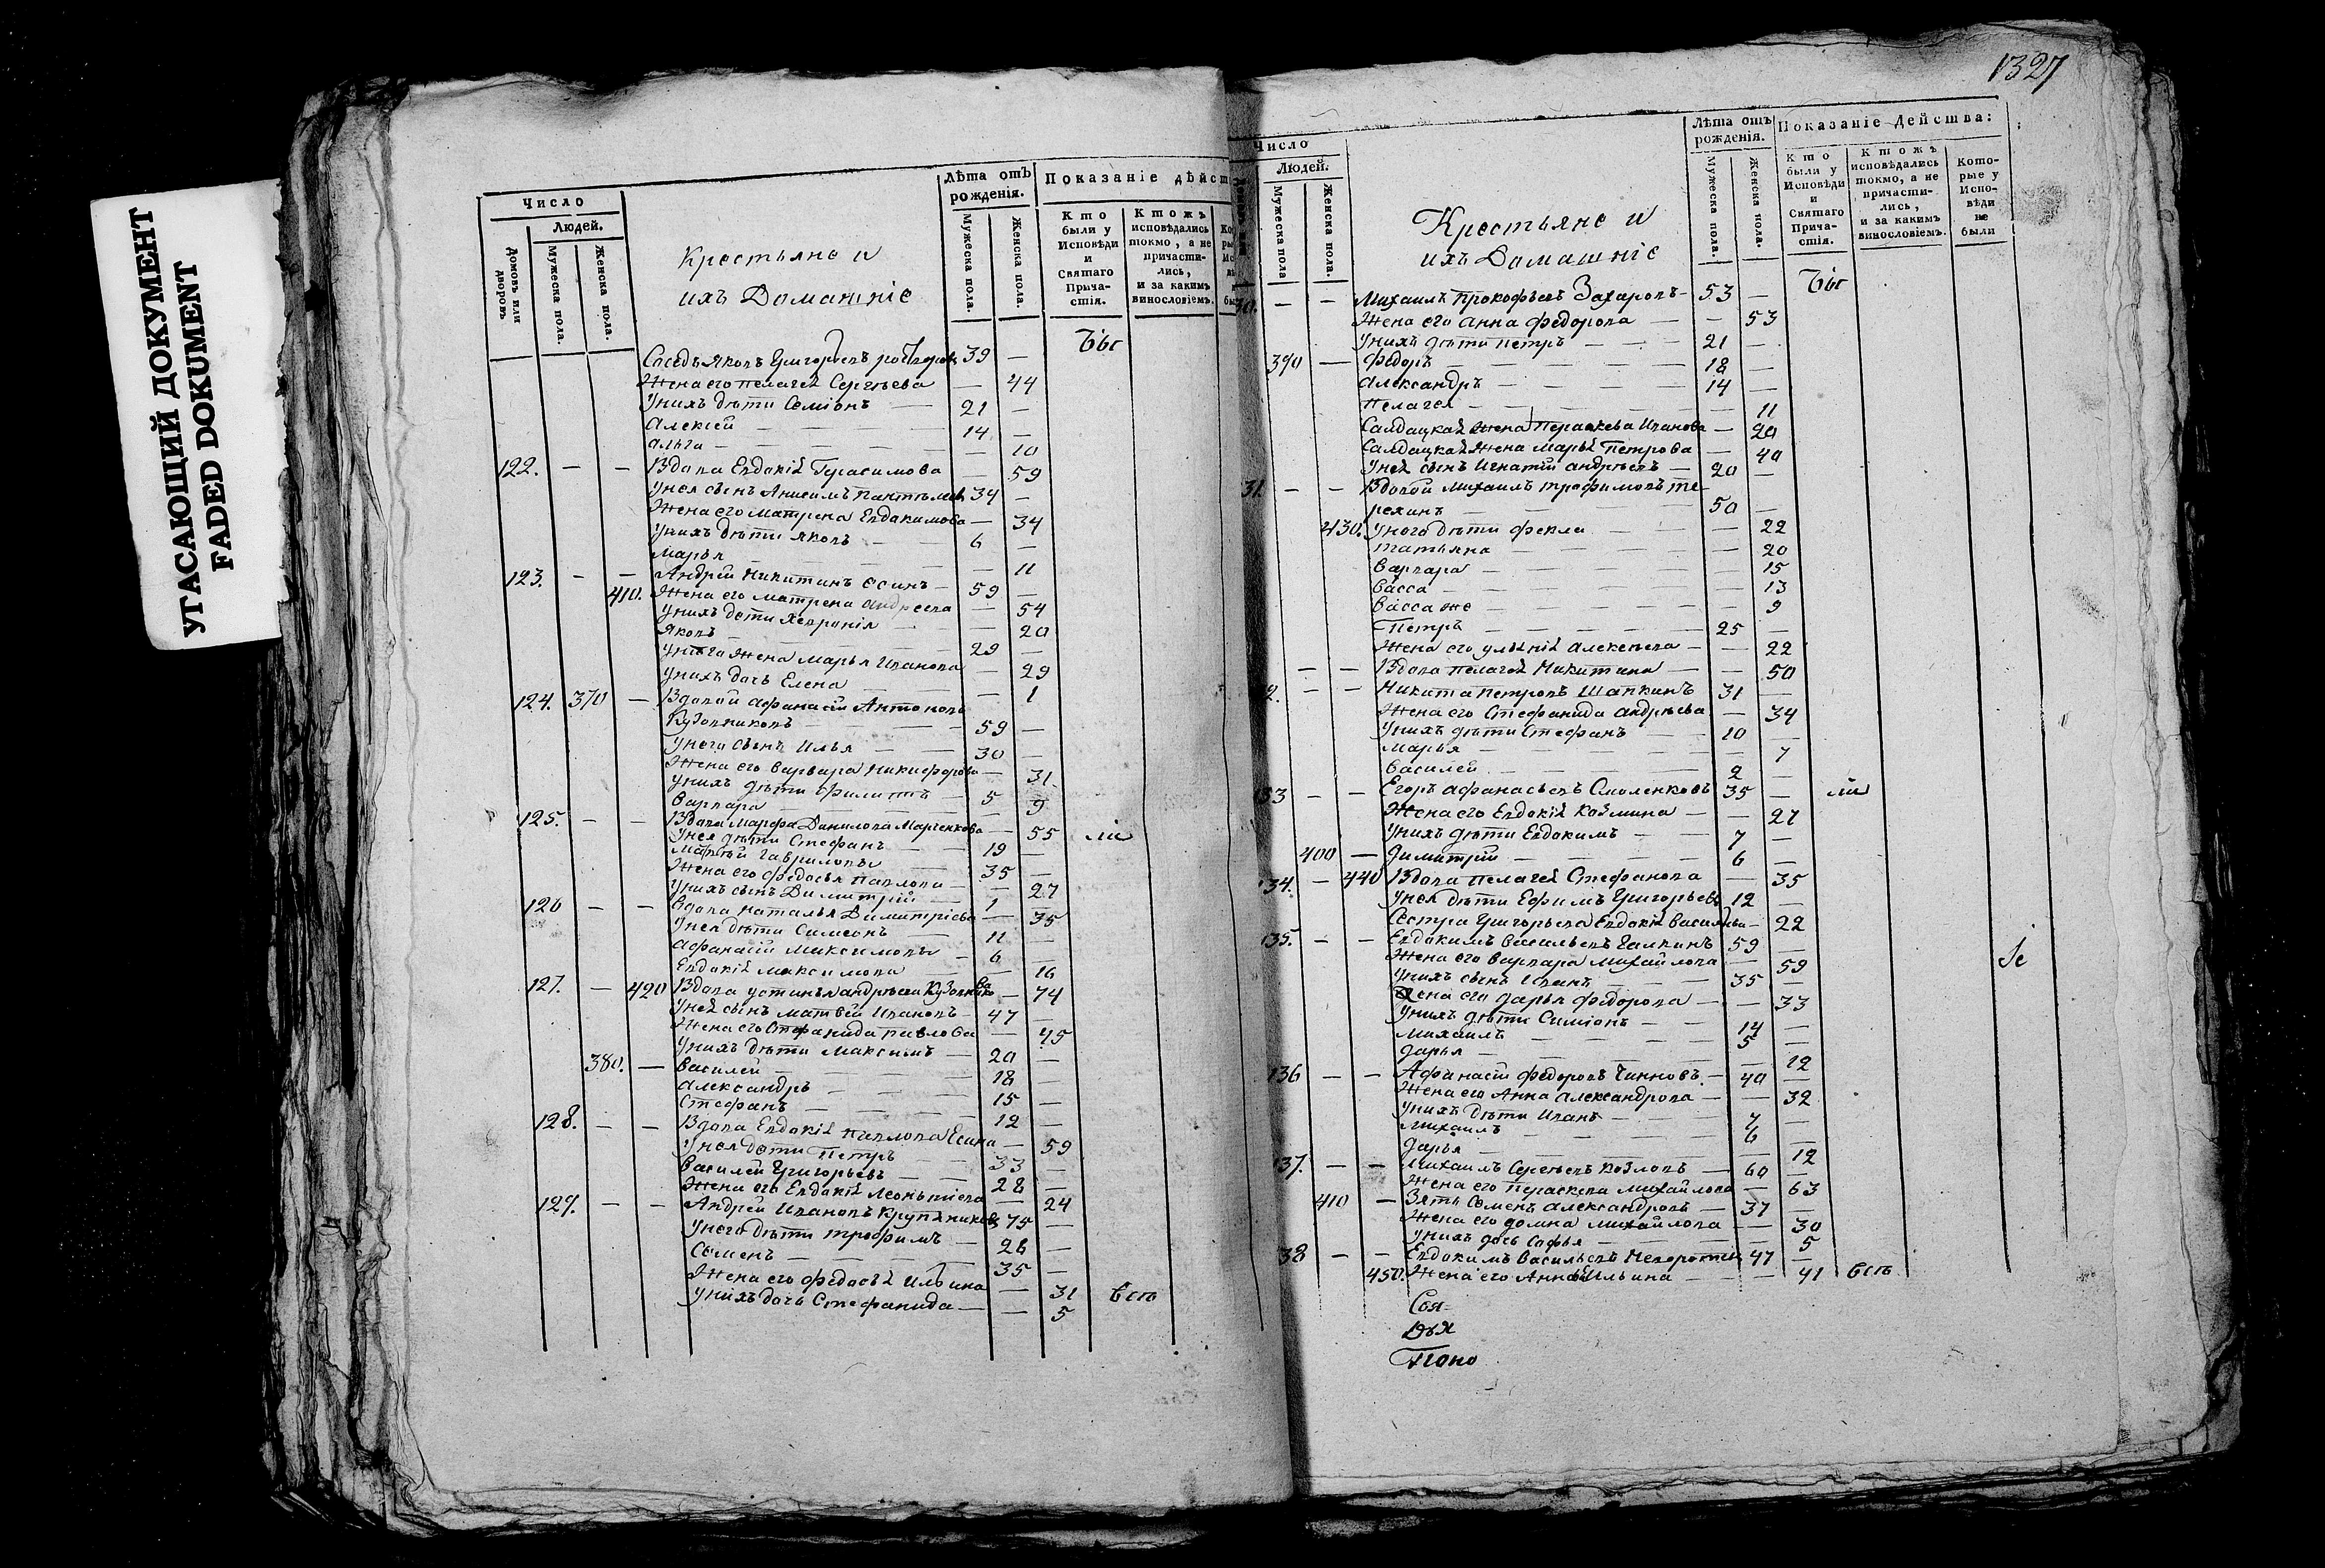 УГАСАЮЩИЙ ДОКУМЕНТ
FADED DOKUMENT
Число
Людей.
Домовъ или дворовъ
Мужеска пола.
Женска пола.
Крестьяне и
ихъ Домашніе
Лѣта отъ рожденія.
Мужеска пола.
Женска пола.
Показаніе дѣйст
Кто были у Исповѣди и Святаго Прича- стія.
Ктожъ исповѣдались токмо, а не причасти- лись, и за какимъ винословіемъ.
Бы
Соседъ Яковъ Григорьевъ 39 —
Жена его Пелагея Сергѣева — 44
У нихъ дѣти Семіонъ — 21 —
Алексей — 14 —
— 10
122. — — Вдова Евдокія Герасимова — 59
У нея сынъ Анисимъ 34 —
Жена его Матрена Евдокимова — 34
У нихъ дѣти Яковъ — 6 —
Марья — 11
123. — — Андрей Никитинъ Осинъ — 59 —
410. Жена его Матрена Андреева — 54
У нихъ дети — 20
Яковъ — 29 —
У него жена Марья Иванова — 29
У нихъ дочь Елена — 1
124. 370 — Вдовой Афанасій Антоновъ
Кузовниковъ — 59 —
У него сынъ Илья — 30 —
Жена его Варвара Никифорова — 31
У нихъ дѣти Филиппъ — 5 —
Варвара — 9
125. — — Вдова Марфа Данилова Марченкова — 55 ли
У нея дѣти Стефанъ — 19 —
Матвѣй Гавриловы 35 —
Жена его Федосья Павлова — 27
У нихъ сынъ Димитрій — 1 —
126 — — Вдова Наталья Димитріева — 35
У нея дѣти Симеонъ — 11 —
Афанасій Максимовы — 6 —
Евдокія Максимова — 16
127. — 420 Вдова Устинья Андреева — 74
У ней сынъ Матвей Ивановъ — 47 —
Жена его Стефанида Павлова — 45
У нихъ дѣти Максимъ — 20 —
380. — Василей — 18 —
Александръ — 15 —
Стефанъ — 12 —
128. — — Вдова Евдокія Павлова Есина — 59
У нея дети Петръ — 33 —
Василей Григорьевъ — 28 —
Жена его Евдокія Леонтіева — 24
129. — — Андрей Ивановъ Крупяниковъ 75 —
У него дѣти Трофимъ — 26 —
Семенъ — 35 —
Жена его Федосья Ильина — 31
У нихъ дочь Стефанида — 5
1327
Число
Людей.
Мужеска пола
Женска пола.
Крестьяне и
ихъ Домашніе
Лѣта отъ рожденія.
Мужеска пола.
Женска пола.
Показаніе Действа:
Кто были у Исповѣди и Святаго Прича- стія.
Ктожъ исповѣдались токмо, а не причасти- лись, и за какимъ винословіемъ.
Кото- рые у Испо- вѣди не были
Бы
— — Михаилъ Прокофьевъ Захаровъ — 53 —
Жена его Анна Федорова — — 53
У нихъ дѣти Петръ — 21 —
390 — Федоръ — 18 —
Александръ — 14 —
Пелагея — 11
Салдацкая жена Пераскева Иванова — 20
Салдацкая жена Марья Петрова — 40
У ней сынъ Игнатій Андрѣевъ — 20 —
31. — — Вдовой Михаилъ Трофимовъ Те-
рехинъ — 50 —
430. У него дѣти Фекла — 22
Татьяна — 20
Варвара — 15
Васса — 13
Васса же — 9
Петръ — 25 —
Жена его Алексѣева — 22
— — Вдова Пелагея Никитина — 50
32. — — Никита Петровъ Шапкинъ 31 —
Жена его Стефанида Андрѣева — 34
У нихъ дѣти Стефанъ — 10 —
Марья — 7
Василей — 2 —
133 — — Егоръ Афанасьевъ Смоленковъ 35 — ли
Жена его Евдокія Козмина — — 27
У нихъ дѣти Евдокимъ — 7 —
400 — Димитрій — 6 —
134. — 440 Вдова Пелагея Стефанова — 35
У нея дѣти Ефимъ Григорьевъ 12 —
Сестра Григорьева Евдокія Васильева — 22
135. — — Евдокимъ Васильевъ Галкинъ 59 —
Жена его Варвара Михайлова — 59
У нихъ сынъ Иванъ — 35 —
Жена его Дарья Федорова — — 33
У нихъ дѣти Симіонъ — 14 —
Михаилъ — 5 —
Дарья — 12
136 — — Афанасій Федоровъ Чинновъ — 40 —
Жена его Анна Александрова — — 32
У нихъ дѣти Иванъ — 7 —
Михаилъ — 6 —
Дарья — 12
137. — — Михаилъ Сергѣевъ Козловъ — 60 —
Жена его Пераскева Михайлова — 63
410 — Зять Семенъ Александровъ — 37 —
Жена его Домна Михайлова — — 30
У нихъ дочь Софья — 5
38 — — Евдокимъ Васильевъ 47 —
450. Жена его Анна Ильина — — 41
Соя=
дья
Поно